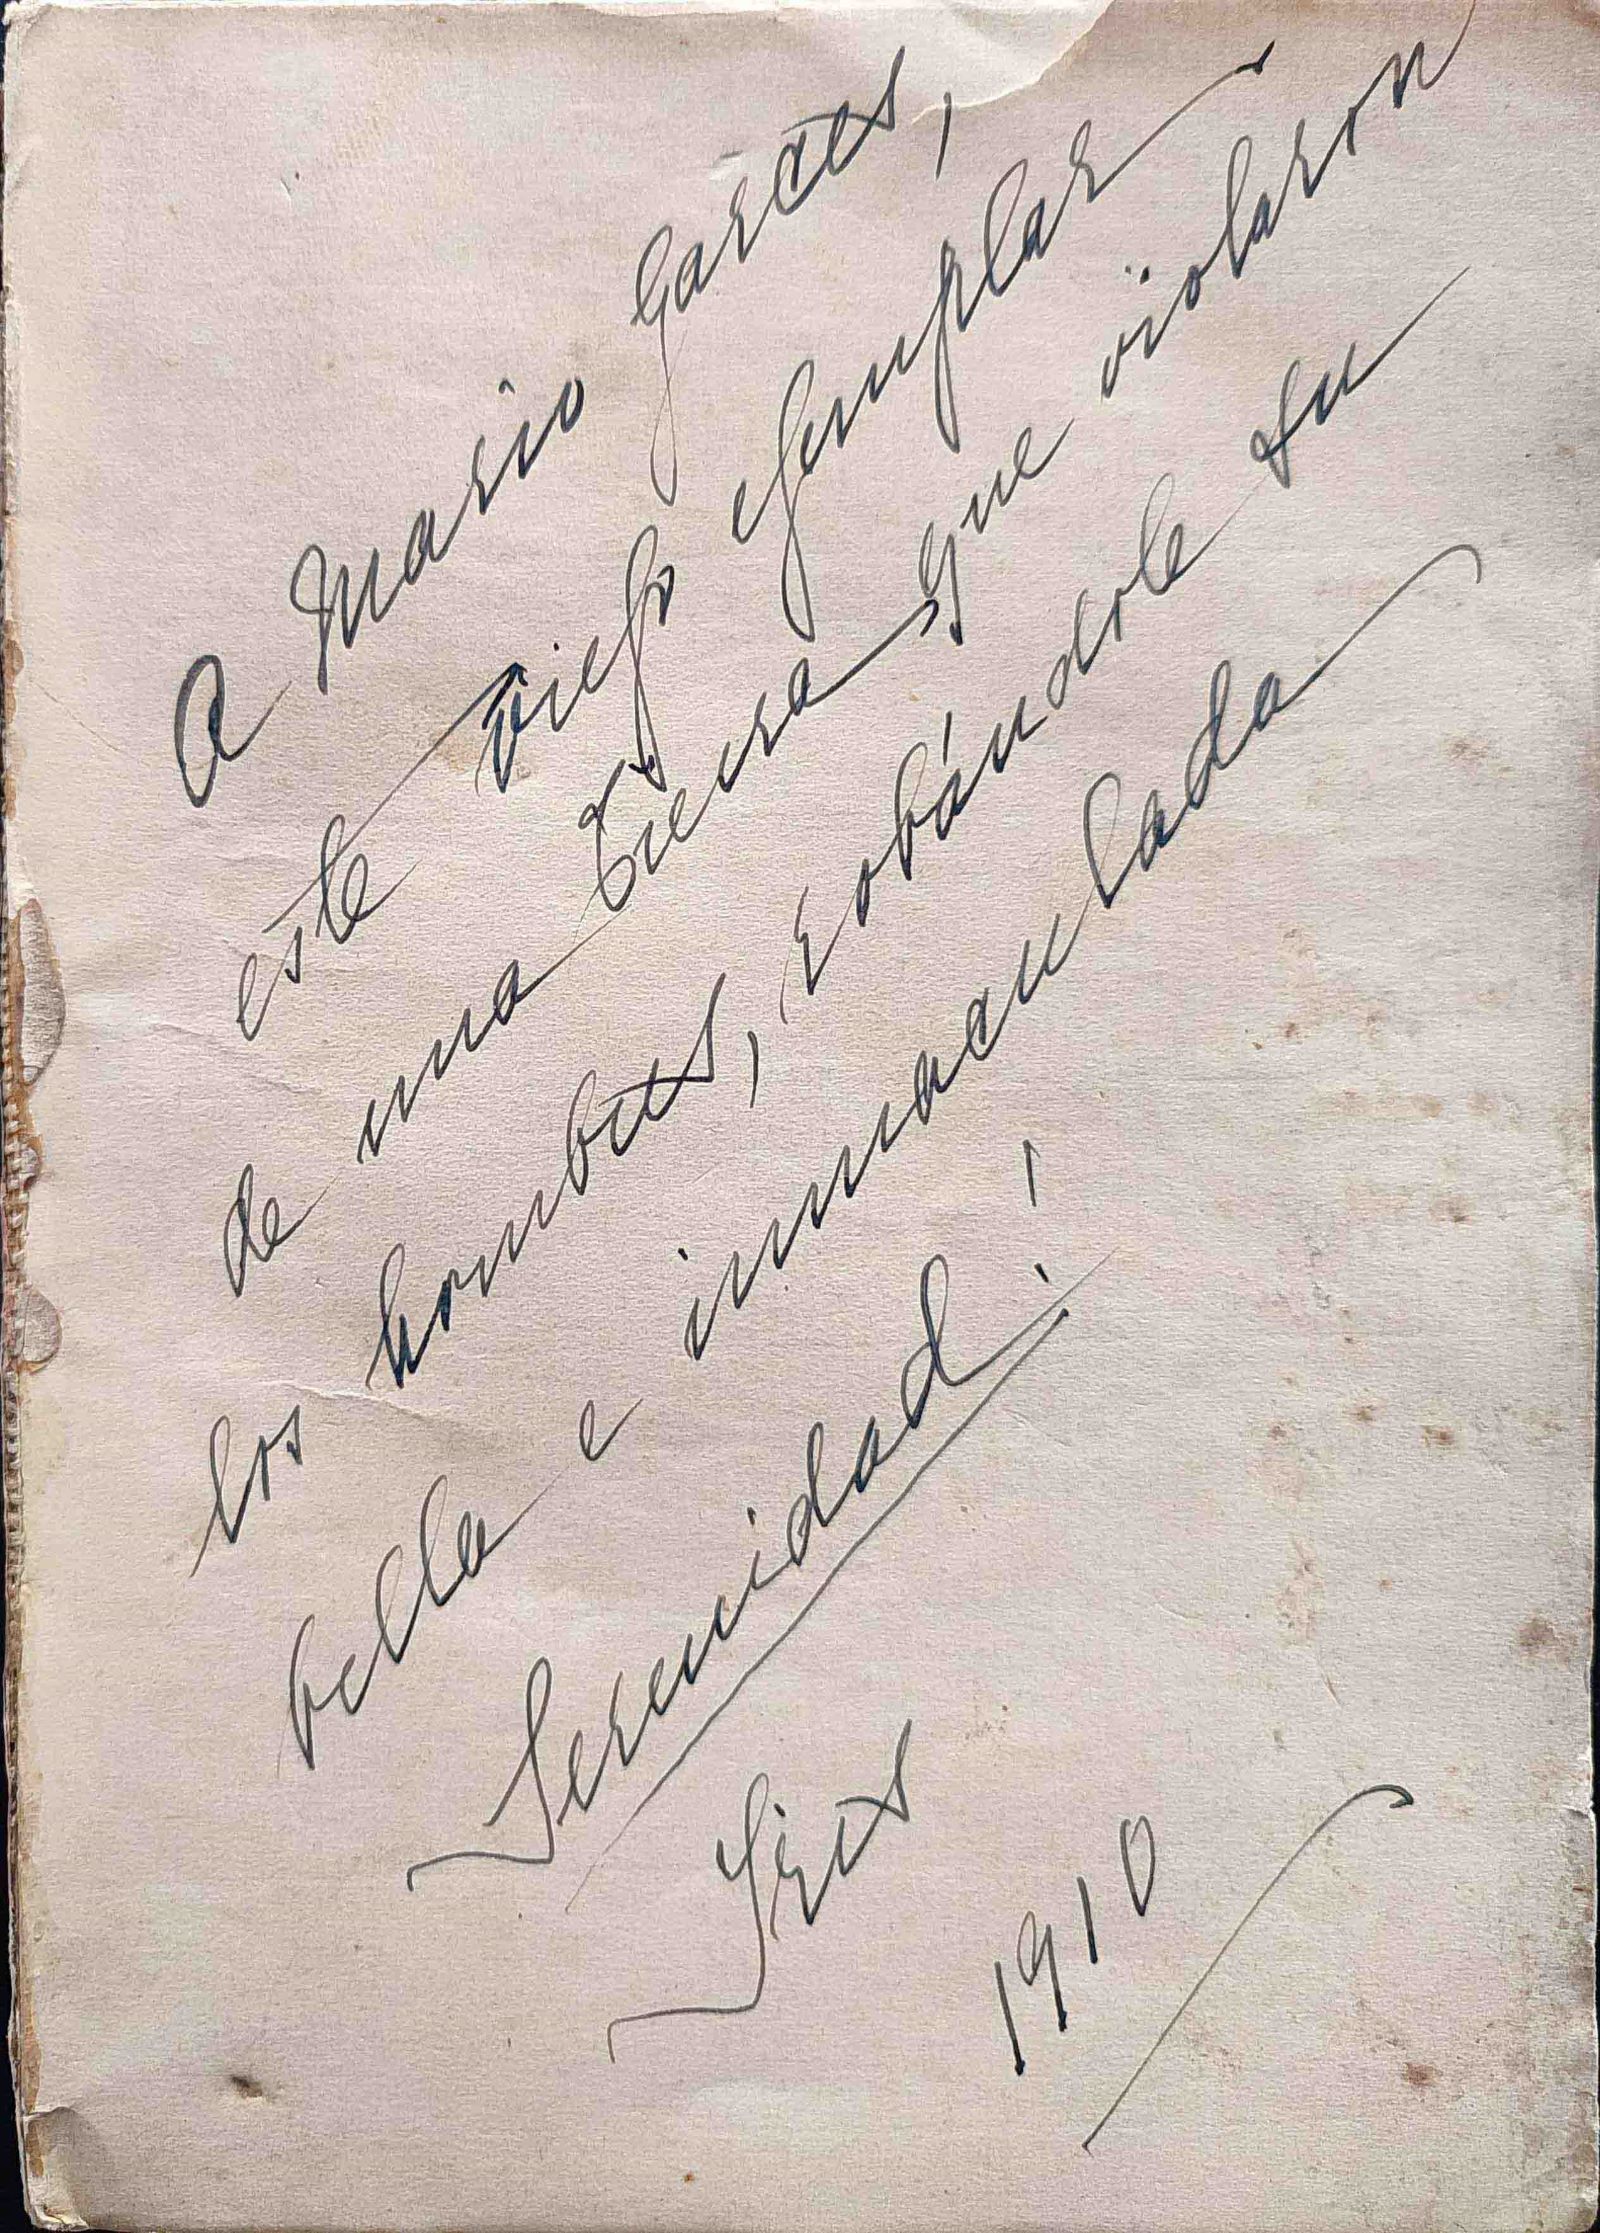 A Mario Garces,
este viejo ejemplar
de una Tierra que violaron
los hombres, robándole su
bella e inmaculada
Serenidad!
1910